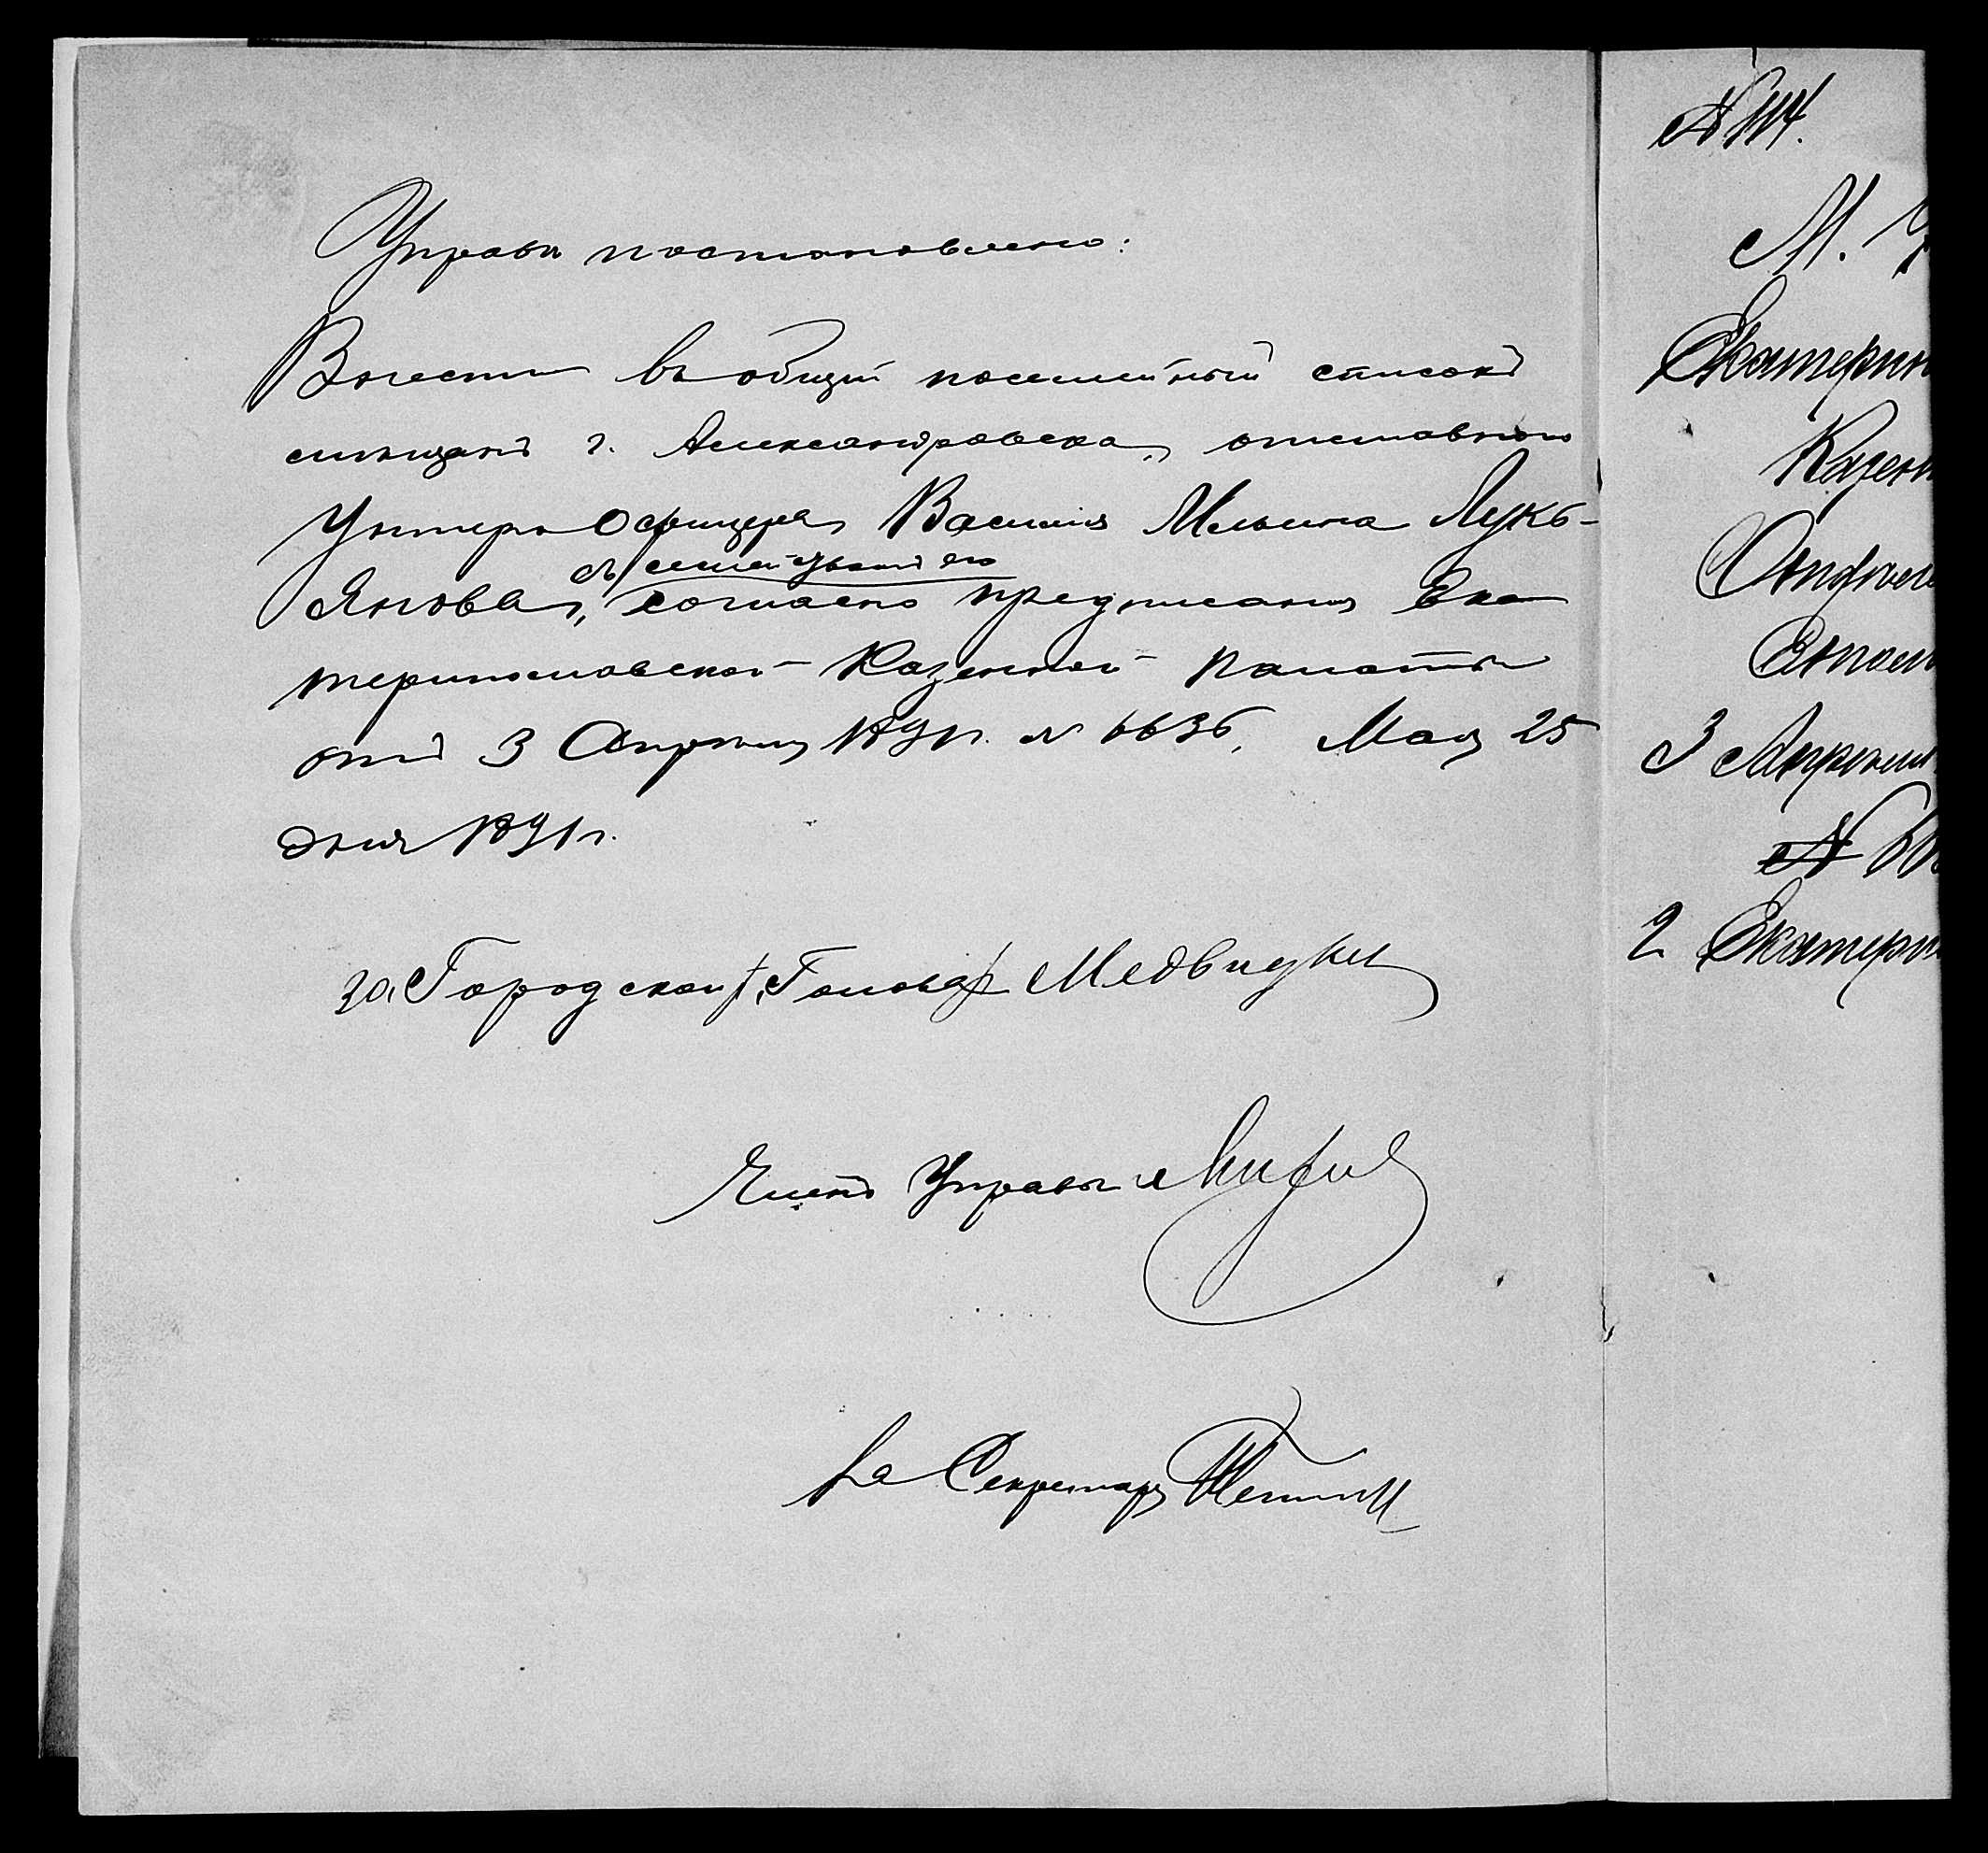 Управы постановлено:
Внести въ общій посемейный списокъ
мѣщанъ г. Александровска, отставнаго
Унтеръ Офицера Василія Ильина Лукь-
съ семействомъ его
Янова, согласно предписанія Ека
теринославской Казенной Палаты
отъ 3 Апрѣля 1891 г. № 6636, Мая 25
дня 1891 г.
За Городского Голову Медвѣдки
Членъ Управы
За Секретаря
№
М. У
Екатерин
Казен
Отдѣле
Столъ
3 Апрѣля
№ 66
2 Екатерин